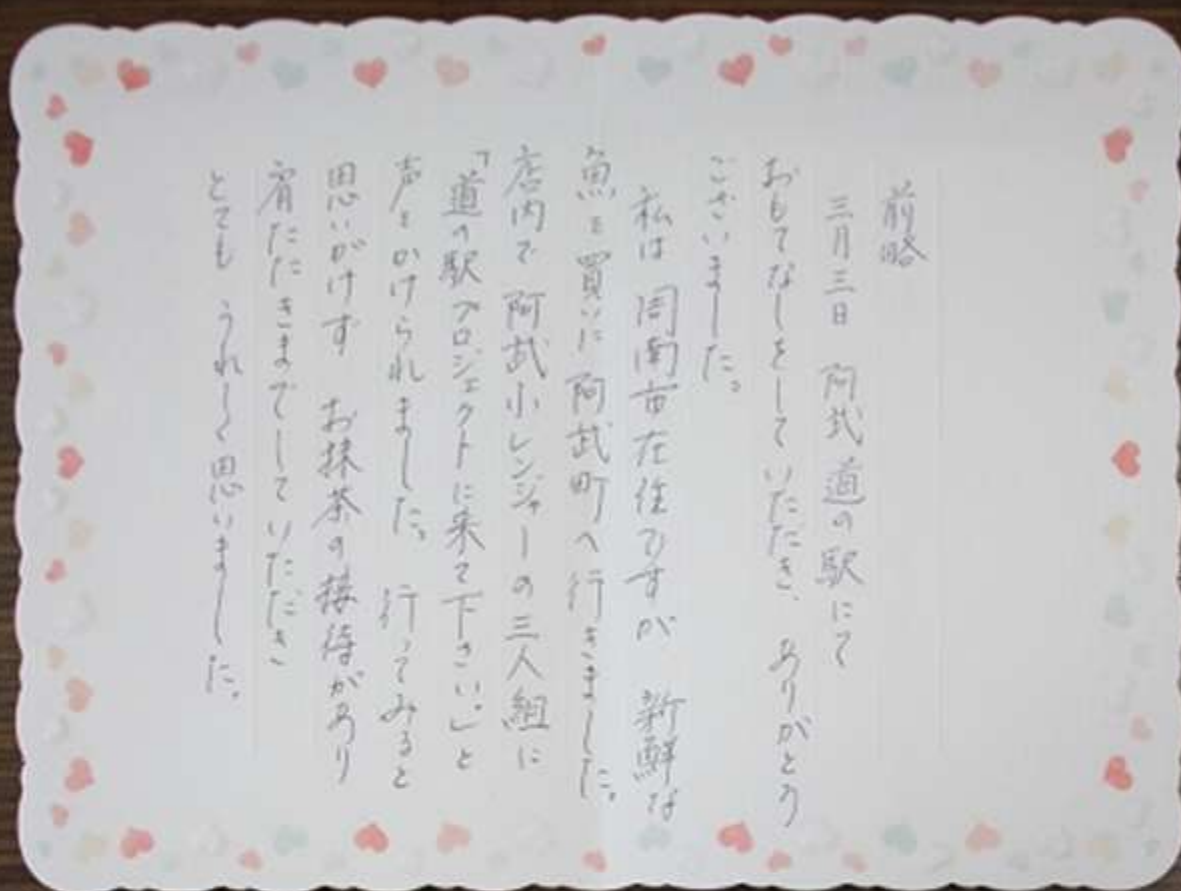 前略
三月三日 阿武道の駅にて
おもてなしをしていただき、ありがとう
ございました。
私は 周南市在住ですが 新鮮な
魚を買いに阿武町へ行きました。
店内で 阿武小レンジャーの三人組に
「道の駅プロジェクトに来て下さい。」と
声をかけられました。 行ってみると
思いがけず お抹茶の接待があり
肩たたきまでしていただき
とても うれしく思いました。